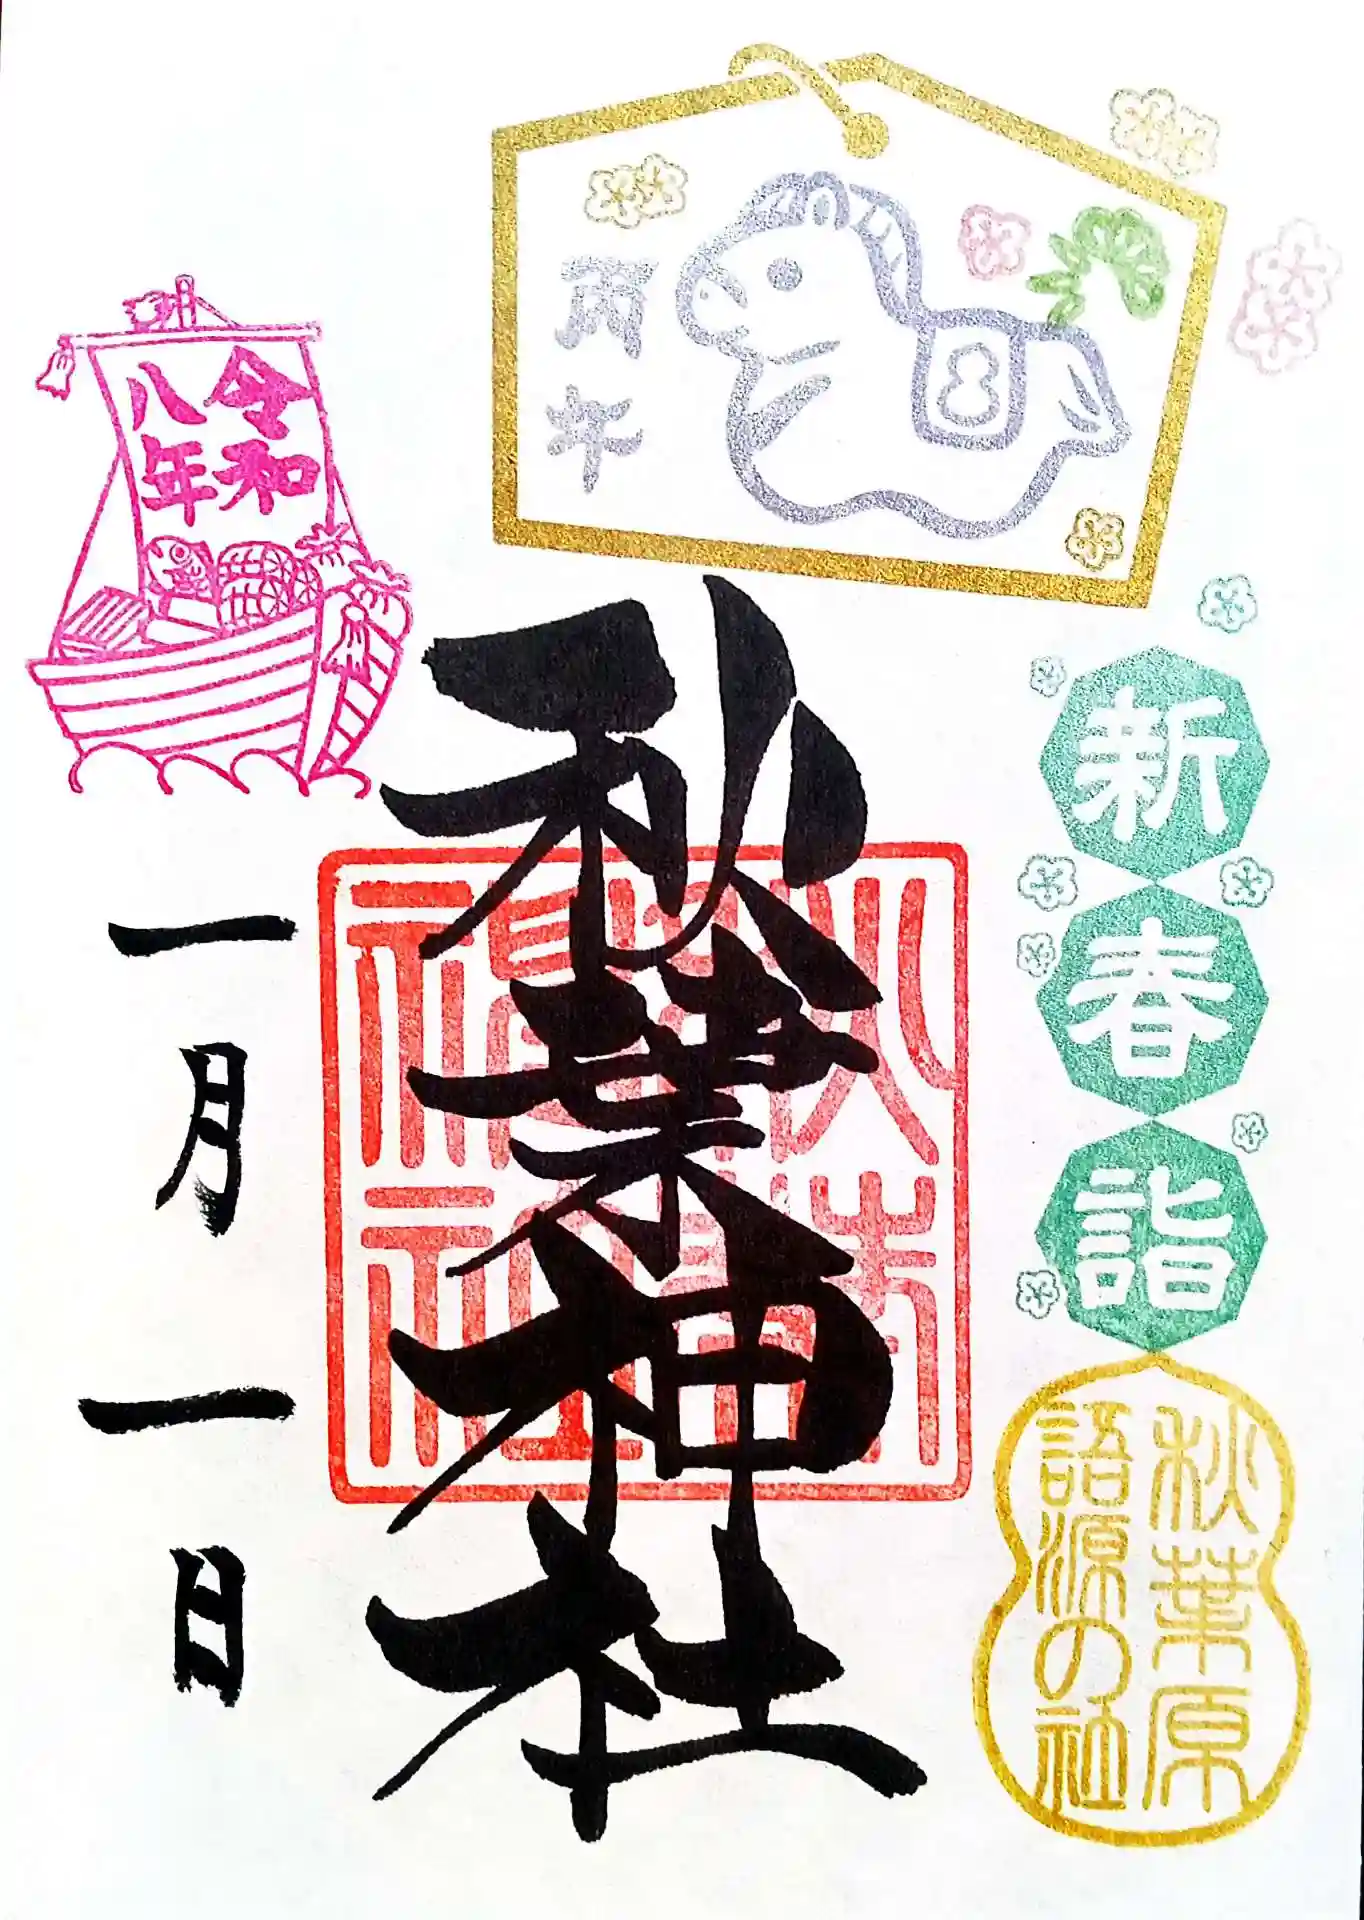 丙午
新春詣
秋葉原
語源の社
秋葉神社
秋葉神社
令和
八年
一月一日